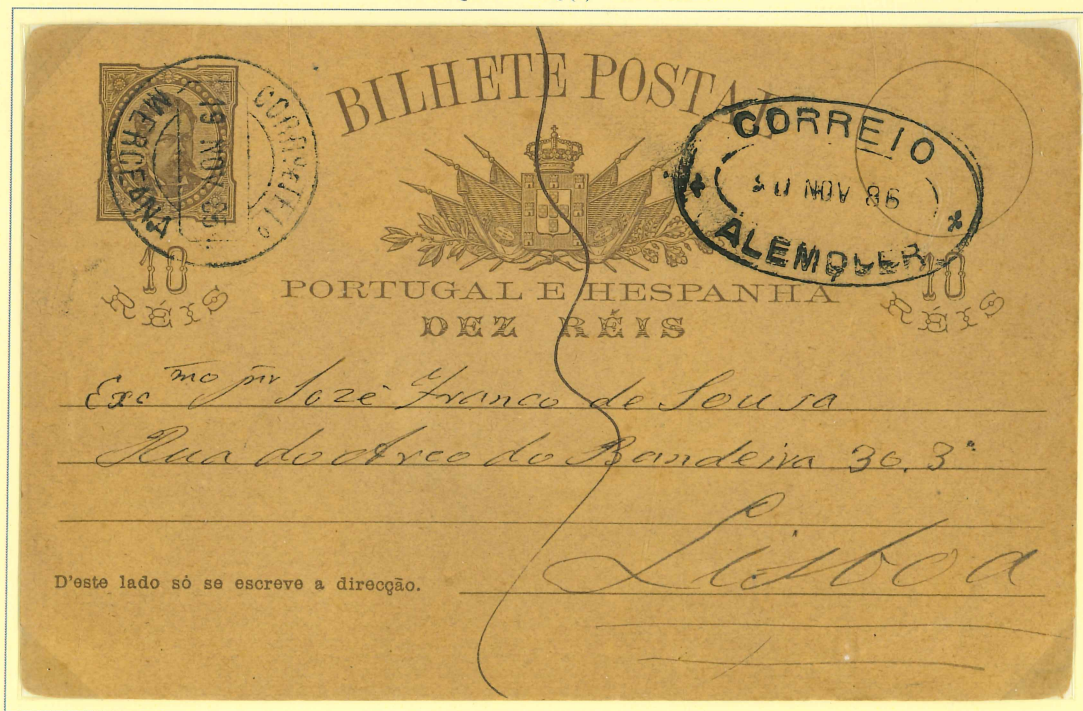 BILHETE POSTAL
CORREIO
MERCEANA
19 NOV 86
CORREIO
NOV 86
ALEMQUER
10 RÉIS
10 RÉIS
PORTUGAL E HESPANHA
DEZ RÉIS
Exc mo snr Jozé Franco de Sousa
Rua do Arco do Bandeira 30. 3º
Lisboa
D'este lado só se escreve a direcção.